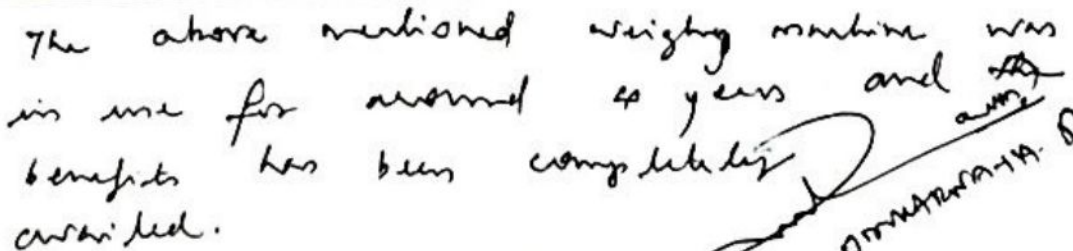 The above mentioned weighg machine was
in use for around 4 years and
benefits has been completely
availed.